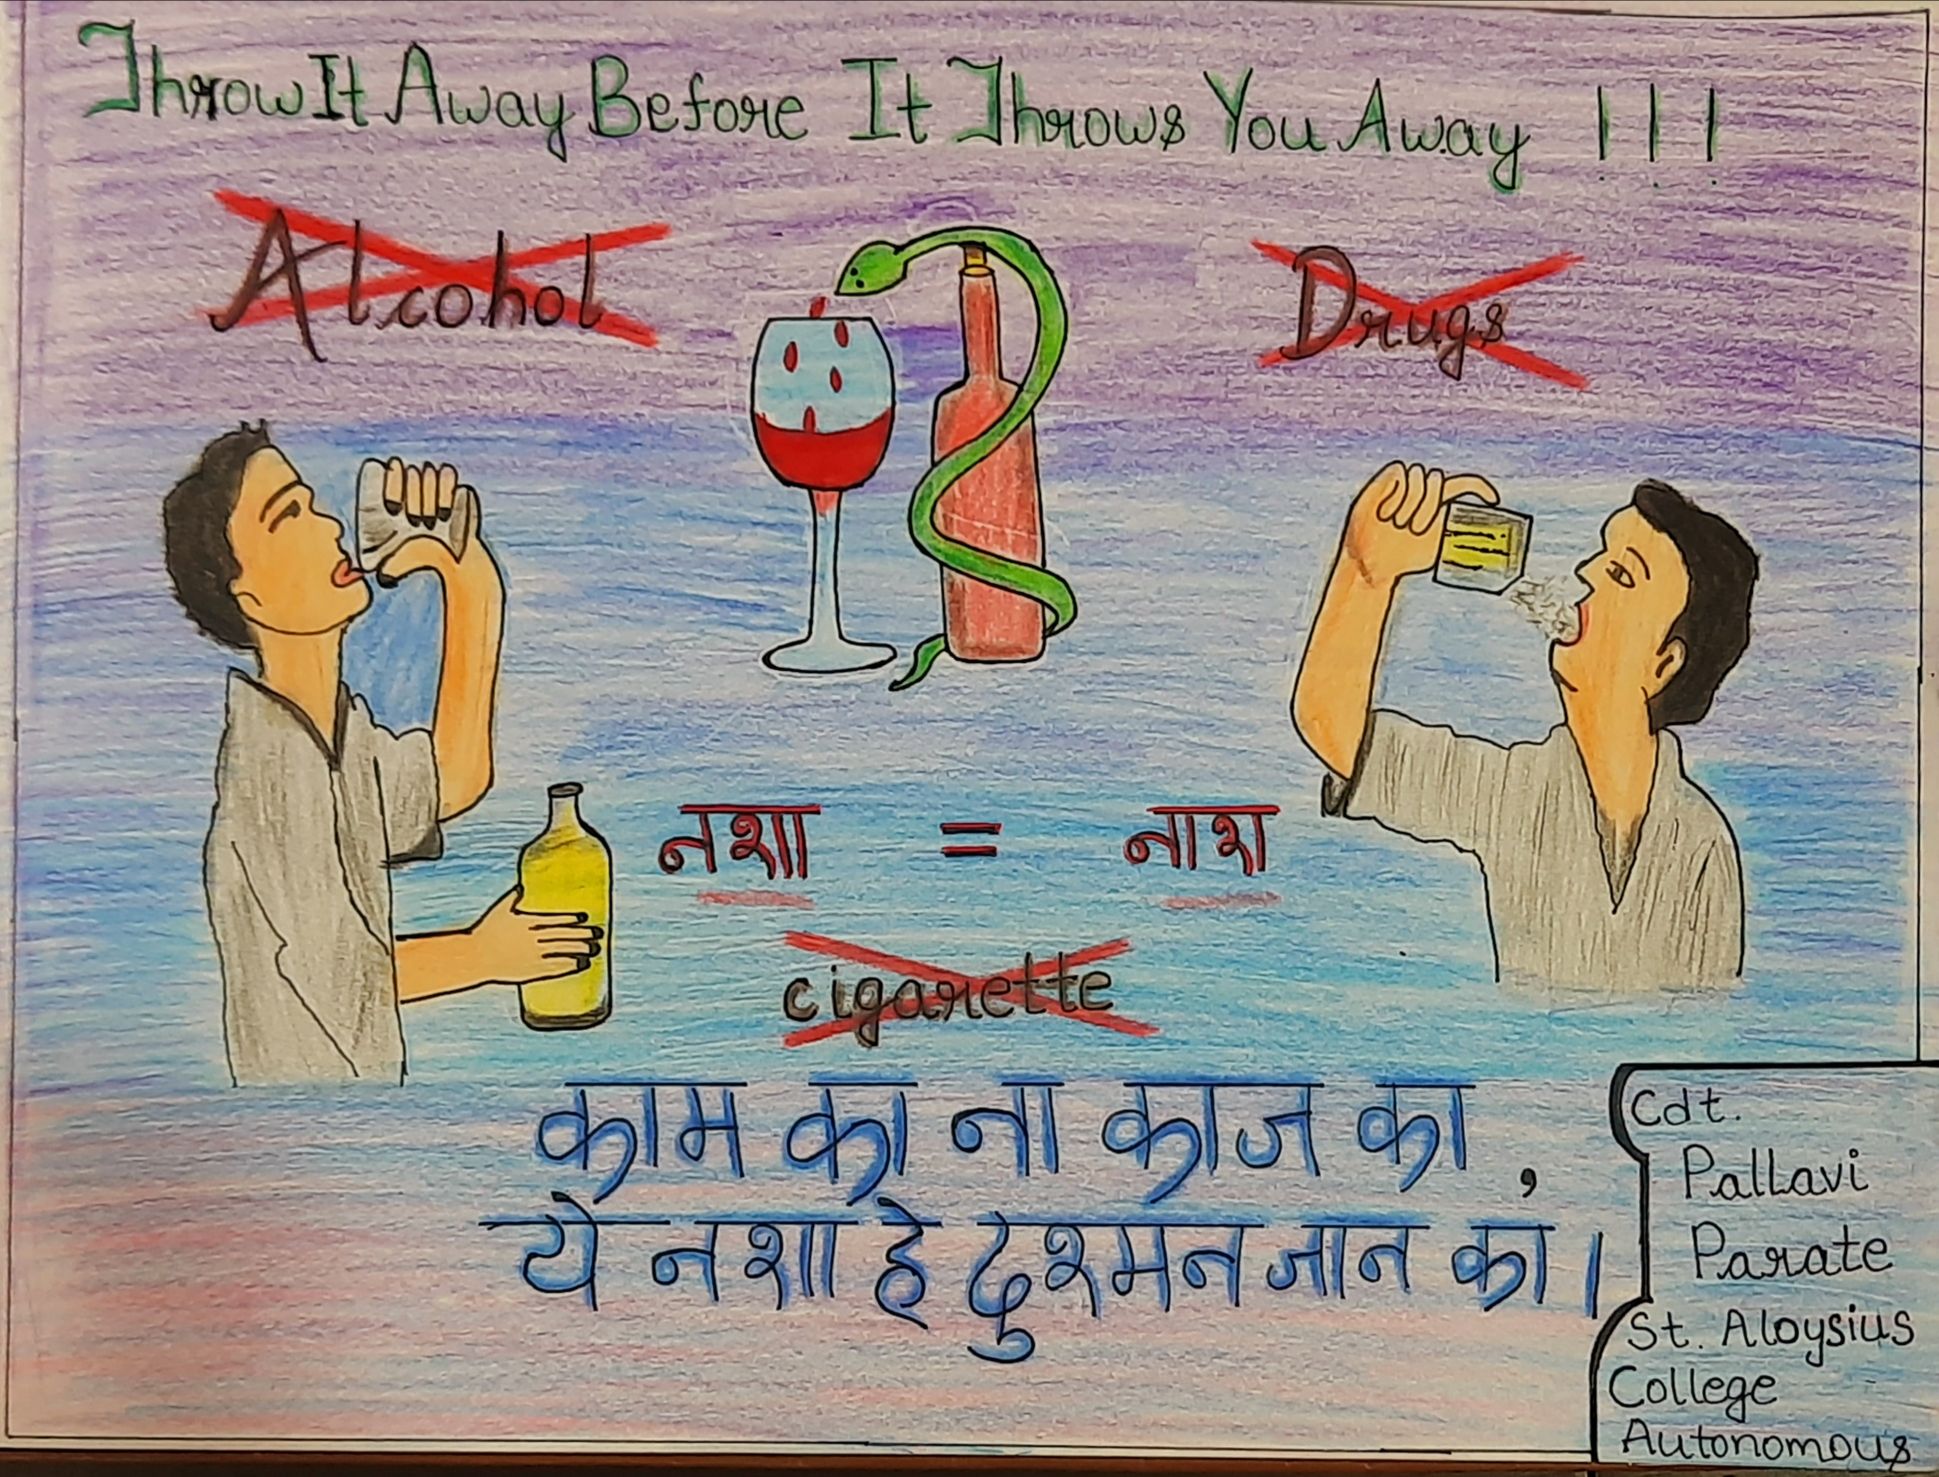 Throw It Away Before It Throws You Away !!!
Alcohol
Drugs
नशा = नाश
cigarette
काम का ना काज का,
ये नशा हे दुश्मन जान का।
Cdt.
Pallavi
Parate
St. Aloysius
College
Autonomous